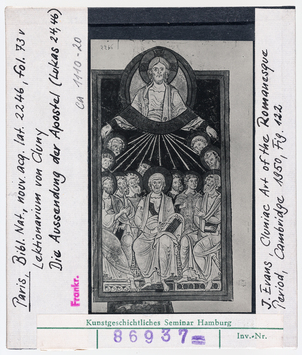 Paris, Bibl. Nat., nouv. acq. lat. 2246, fol. 79v
Lektionarium von Cluny
Die Aussendung der Apostel (Lukas 24,46)
ca 1110-20
Frankr.
J. Evans, Cluniac Art of the Romanesque
Period, Cambridge 1950, Fig. 122
Kunstgeschichtliches Seminar Hamburg
86937
Inv.-Nr.